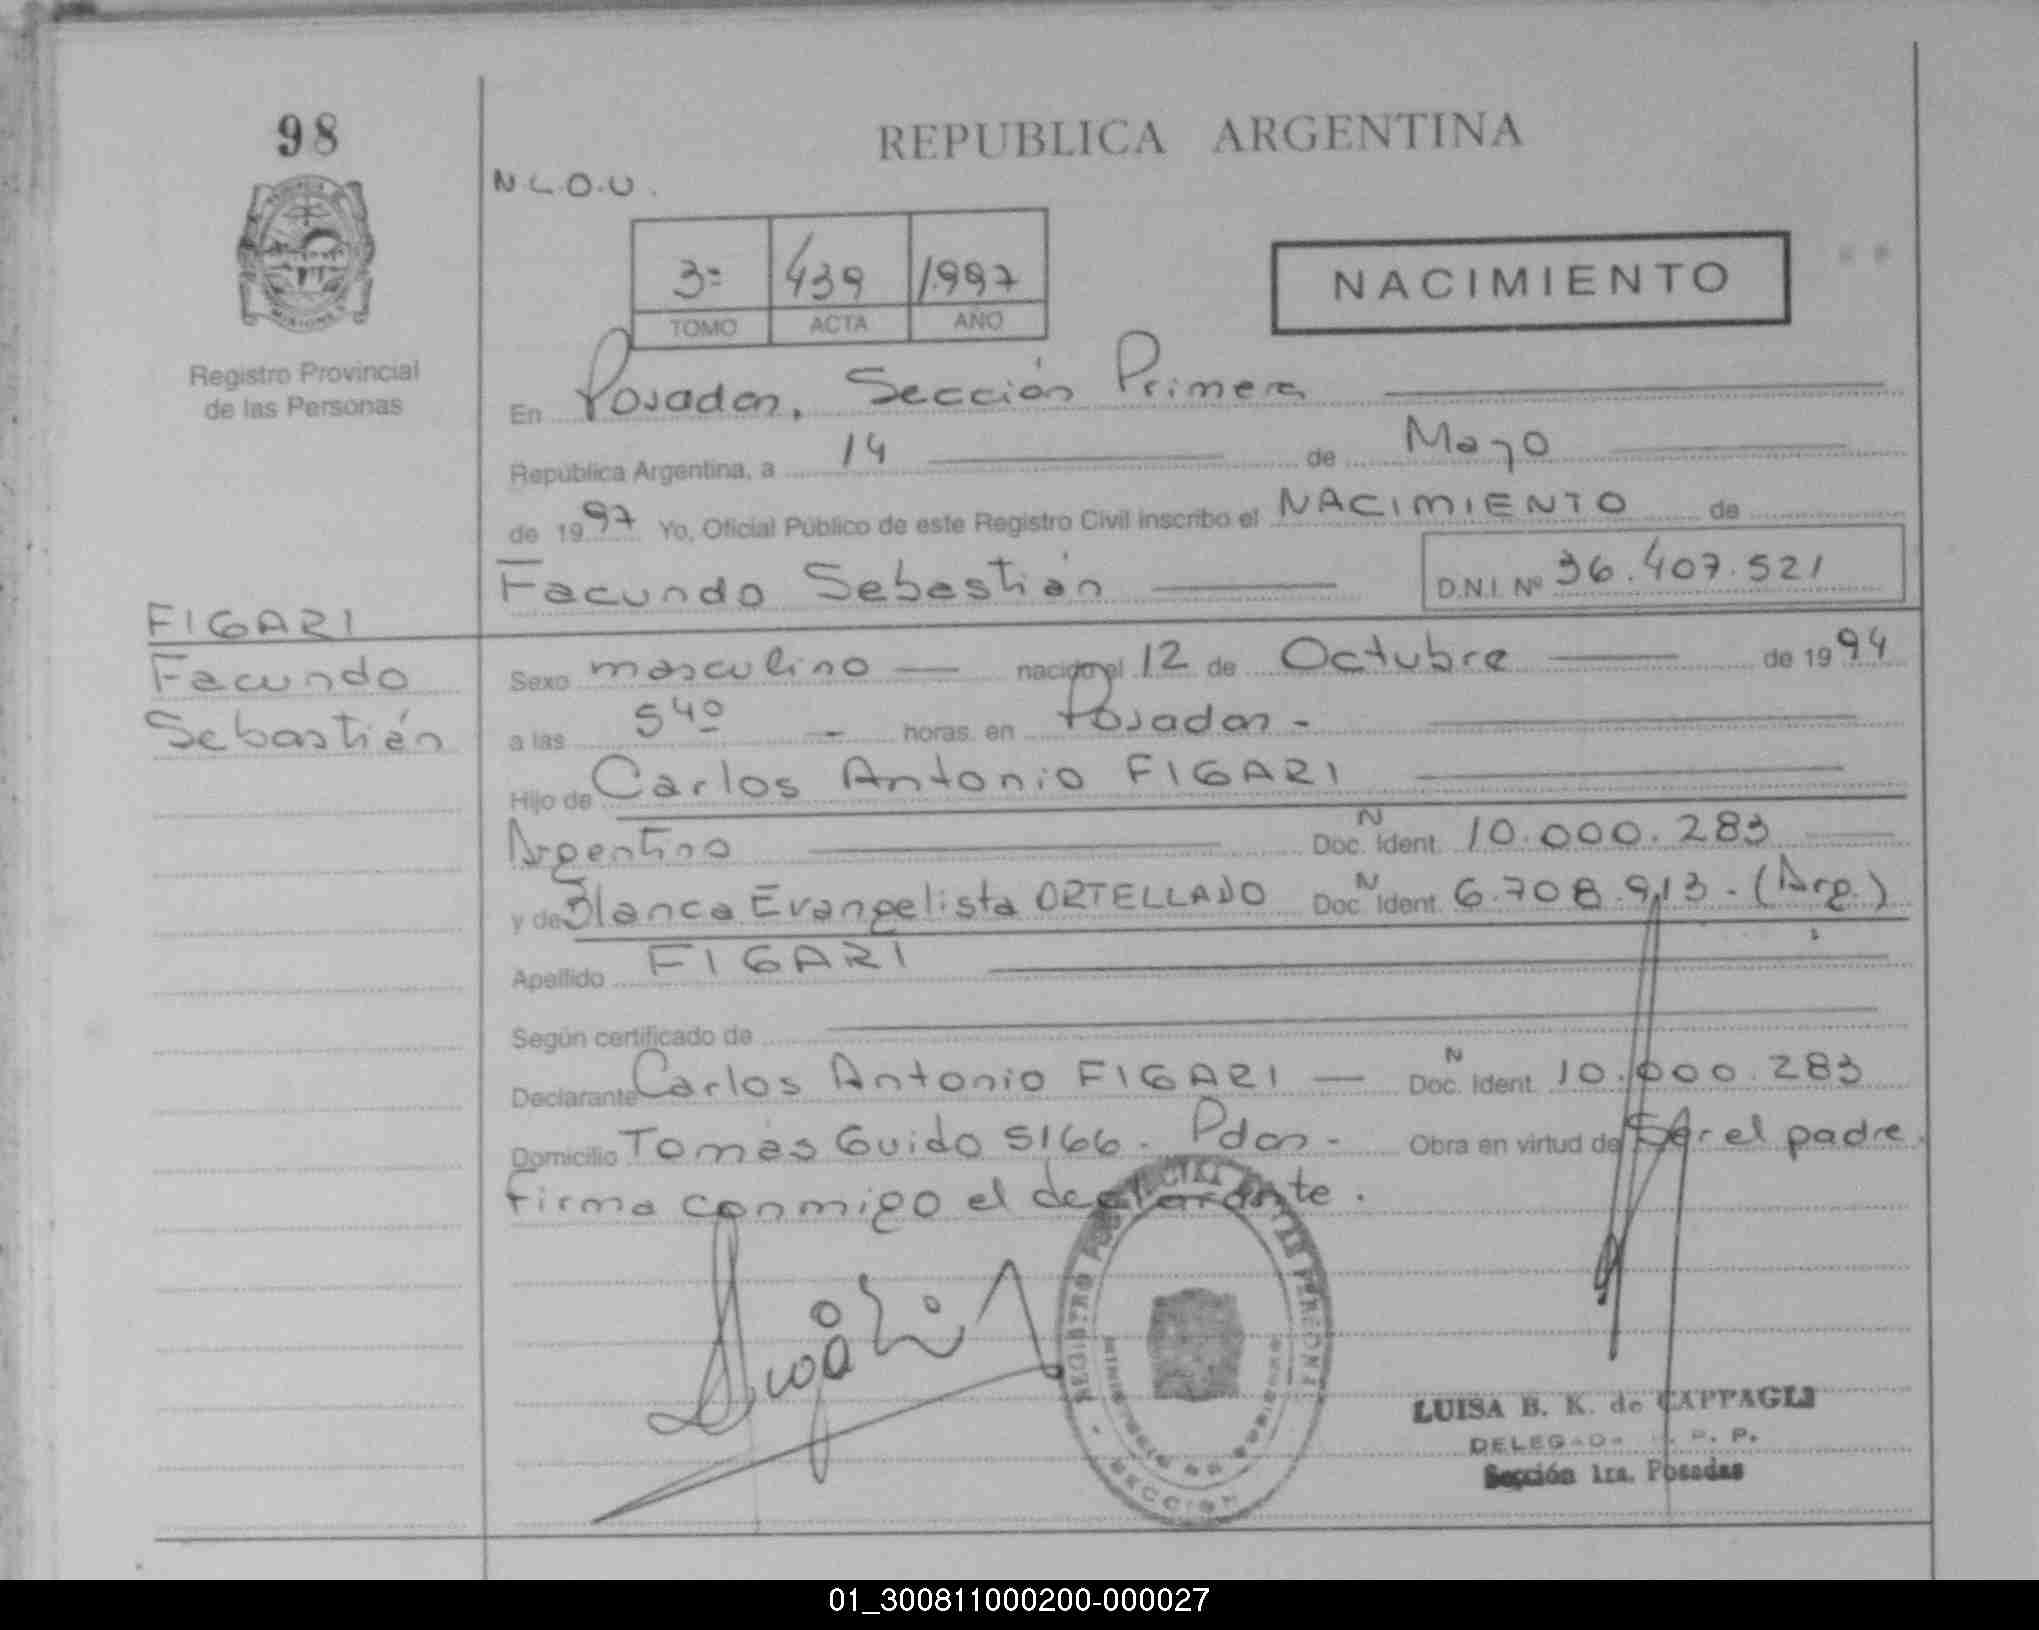 98
REPUBLICA ARGENTINA
N.L.O.U.
NACIMIENTO
3º 439 1.997
TOMO ACTA AÑO
Registro Provincial
de las Personas
En Posadas, Sección Primera
República Argentina, a 14 de Mayo
de 1997 Yo, Oficial Público de este Registro Civil inscribo el NACIMIENTO de
Facundo Sebastián D.N.I. Nº 36.407.521
FIGARI
Facundo
Sebastián
Sexo masculino nacido el 12 de Octubre de 1994
a las 5 40 horas en Posadas -
Hijo de Carlos Antonio FIGARI
Argentino Doc. N Ident. 10.000.283
y de Blanca Evangelista ORTELLADO Doc. N Ident. 6.708.913 - (Arg.)
Apellido FIGARI
Según certificado de
Declarante Carlos Antonio FIGARI — Doc. N Ident. 10.000.283
Domicilio Tomás Guido 5166 - Pdas - Obra en virtud de Ser el padre.
firma conmigo el declarante.
LUISA B. K. de CAPPAGLI
Sección 1ra. Posadas
SECCION
01_300811000200-000027